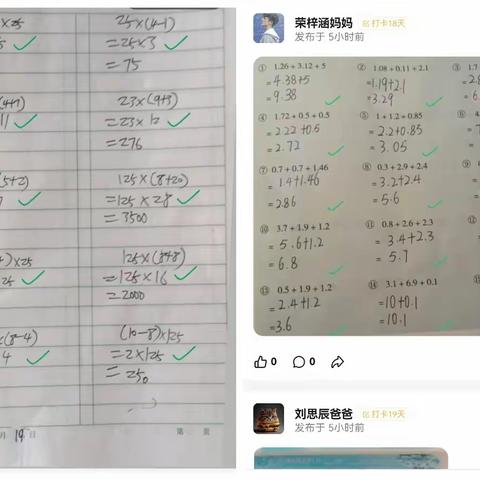 ×25
5
25×(4-1)
=25×3
=75
(4+7)
11
23×(9+3)
=23×12
=276
5+2)
125×(8+20)
=125×28
=3500
)×25
25
=125×16
=2000
×(8-4)
4
(10-8)×125
=2×125
=250
月 19 日
第 页
荣梓涵妈妈 打卡18天
发布于 5小时前
① 1.26 + 3.12 + 5
=4.38+5
=9.38
② 1.08 + 0.11 + 2.1
=1.19+2.1
=3.29
③ 1.7
=2.8
=6
④ 1.72 + 0.5 + 0.5
=2.22+0.5
=2.72
⑤ 1 + 1.2 + 0.85
=2.2+0.85
=3.05
⑥ 4
⑦ 0.7 + 0.7 + 1.46
=1.4+1.46
2.86
⑧ 0.3 + 2.9 + 2.4
=3.2+2.4
=5.6
⑨
⑩ 3.7 + 1.9 + 1.2
=5.6+1.2
=6.8
⑪ 0.8 + 2.6 + 2.3
=3.4+2.3
=5.7
⑫
⑬ 0.5 + 1.9 + 1.2
=2.4+1.2
=3.6
⑭ 3.1 + 6.9 + 0.1
=10+0.1
=10.1
⑮
0
0
刘思辰爸爸 打卡19天
发布于 5小时前